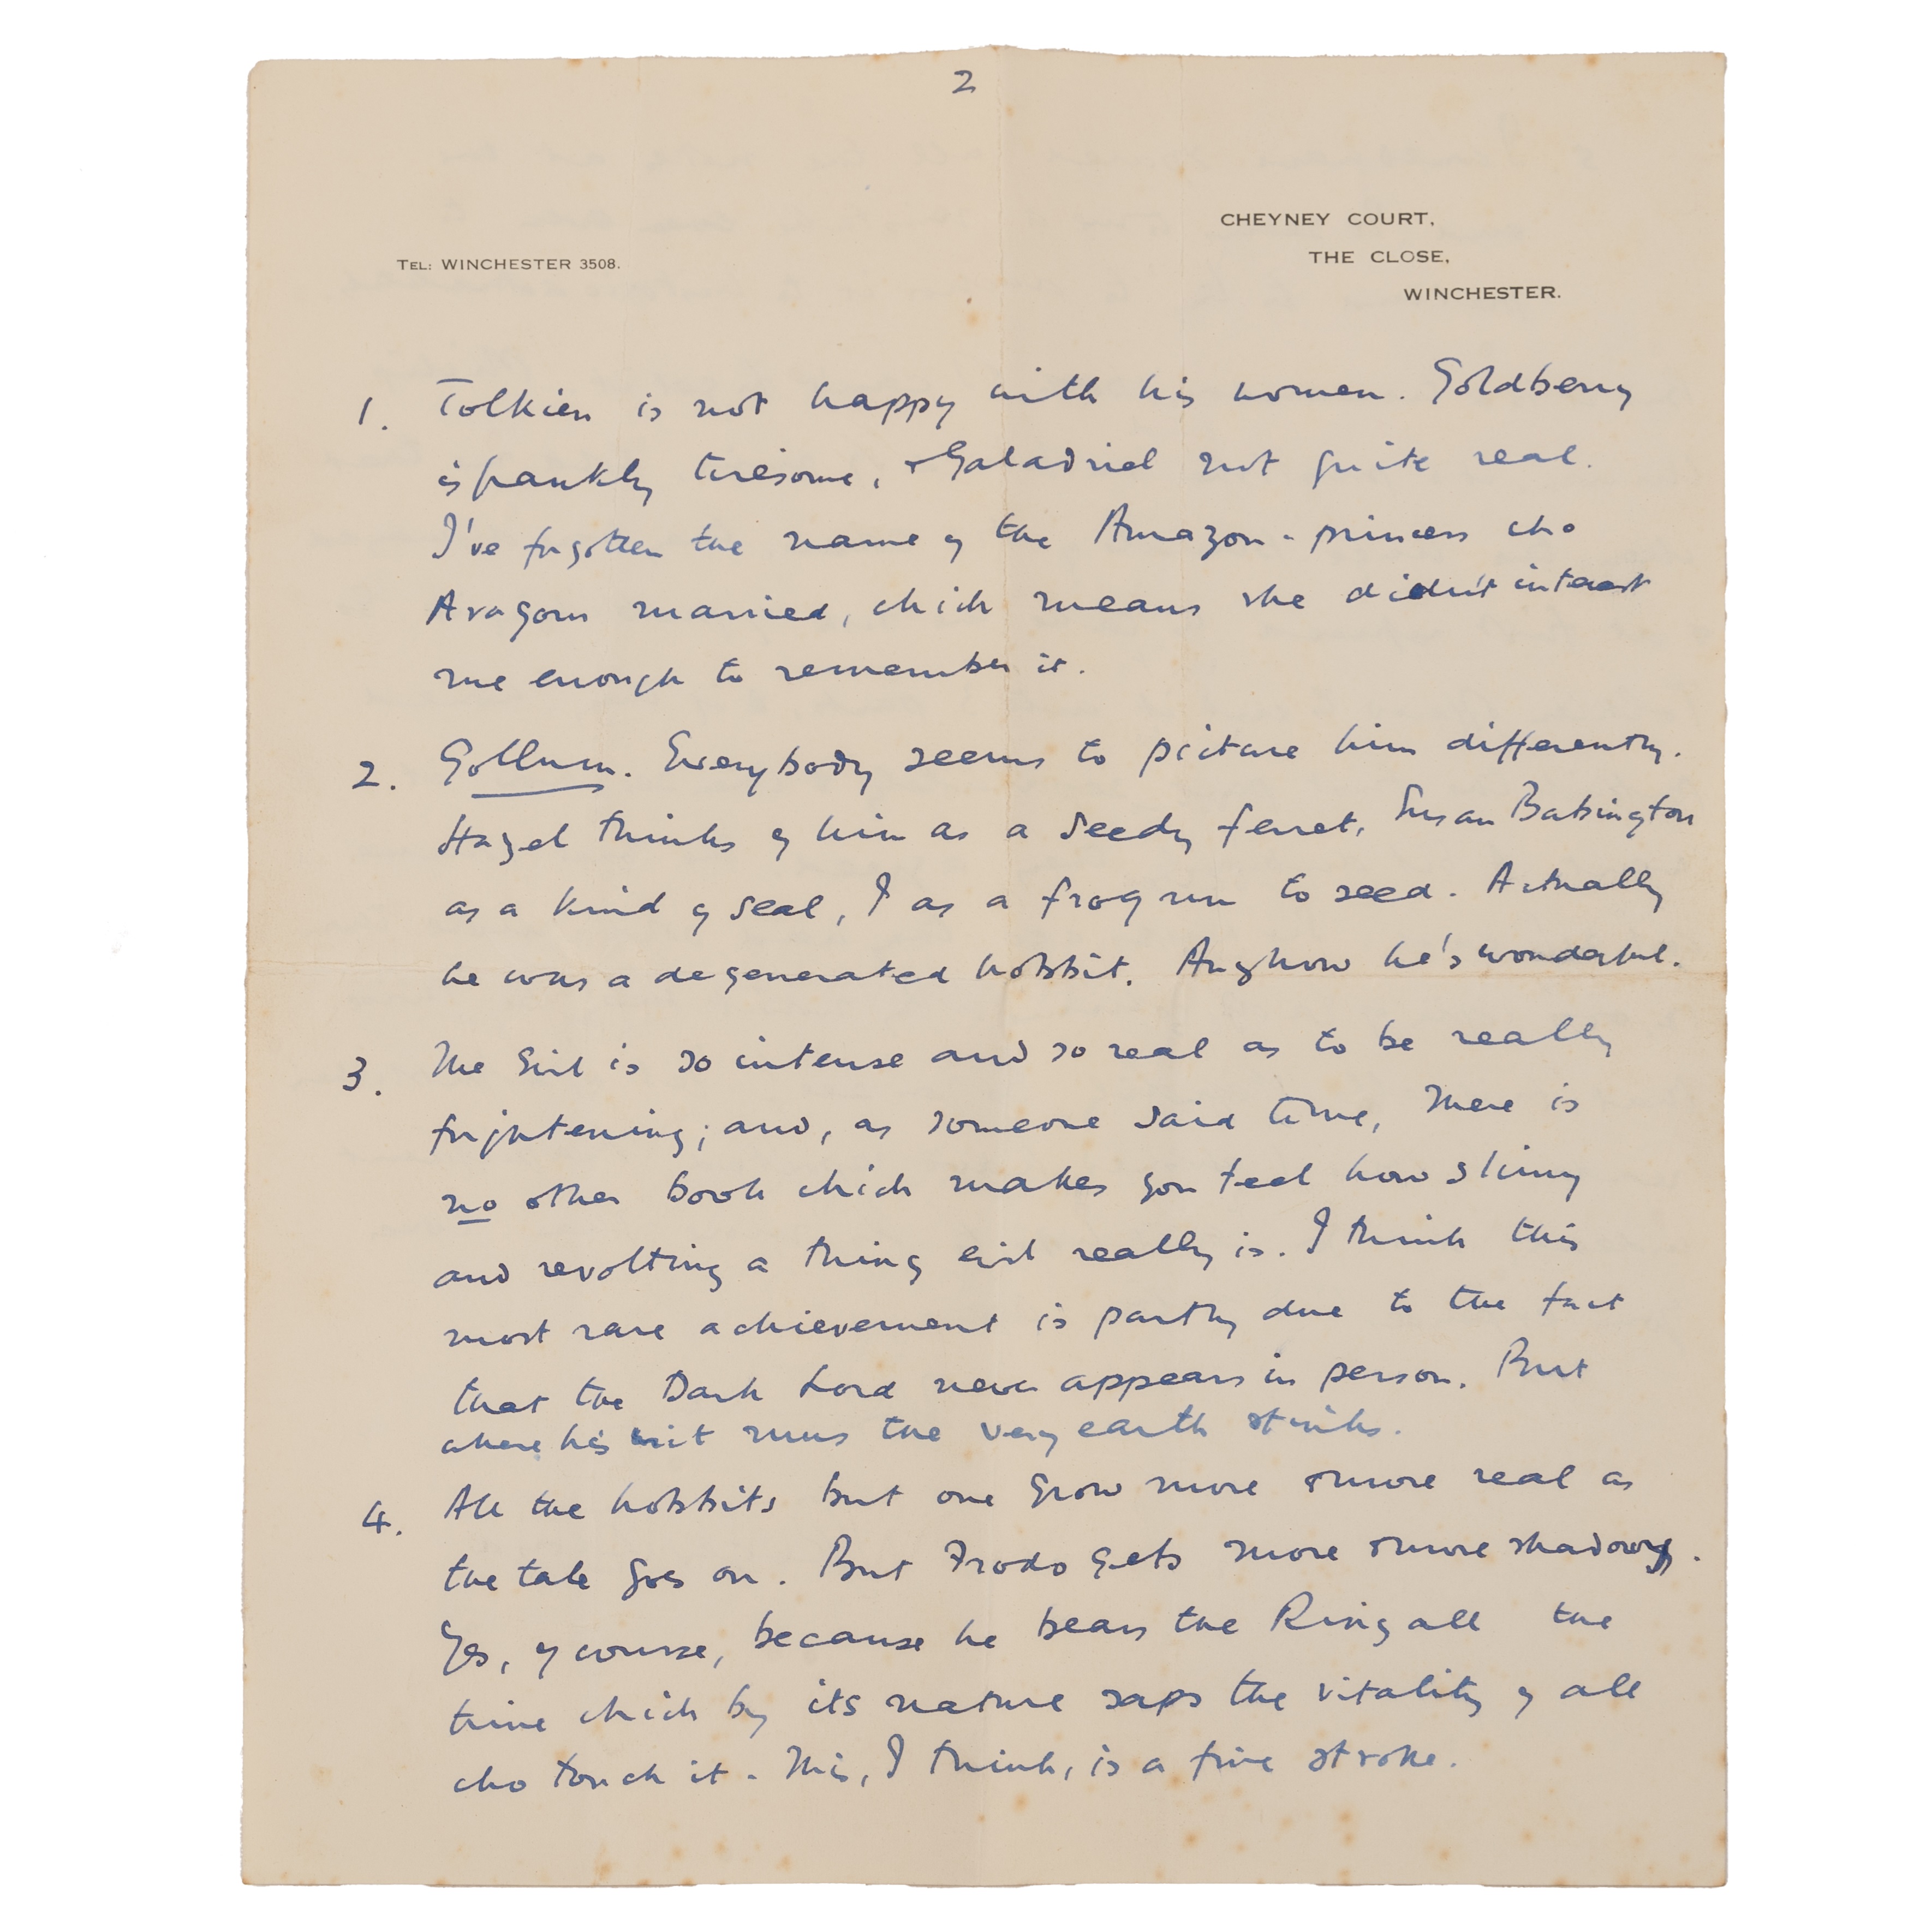 2
CHEYNEY COURT,
THE CLOSE,
WINCHESTER.
TEL: WINCHESTER 3508.
1. Tolkien is not happy with his women. Goldberry
is frankly tiresome, & Galadriel not quite real.
I've forgotten the name of the Amazon-princess who
Aragorn married, which means she didn't interest
me enough to remember it.
2. Gollum. Everybody seems to picture him differently.
Hazel thinks of him as a seedy ferret, Susan Babington
as a kind of seal, I as a frog run to seed. Actually
he was a degenerated hobbit. Anyhow he's wonderful.
3. The Evil is so intense and so real as to be really
frightening; and, as someone said to me, there is
no other book which makes you feel how slimy
and revolting a thing evil really is. I think this
most rare achievement is partly due to the fact
that the Dark Lord never appears in person. But
where his writ runs the very earth stinks.
4. All the hobbits but one grow more & more real as
the tale goes on. But Frodo gets more & more shadowy.
Yes, of course, because he bears the Ring all the
time which by its nature saps the vitality of all
who touch it. This, I think, is a fine stroke.